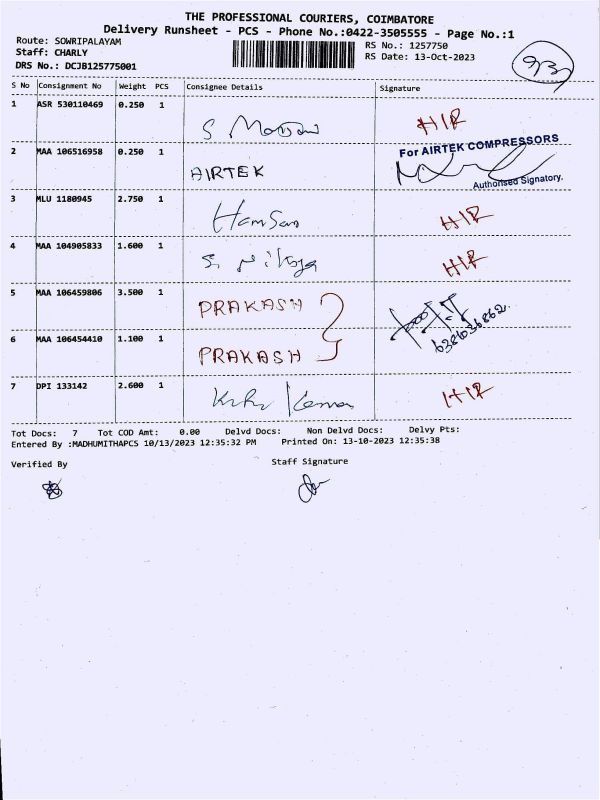 THE PROFESSIONAL COURIERS, COIMBATORE
Delivery Runsheet - PCS - Phone No.:0422-3505555 - Page No.:1
Route: SOWRIPALAYAM RS No.: 1257750
Staff: CHARLY RS Date: 13-Oct-2023
DRS No.: DCJB125775001
S No Consignment No Weight PCS Consignee Details Signature
1 ASR 530110469 0.250 1 S H/R
For AIRTEK COMPRESSORS
2 MAA 106516958 0.250 1 AIRTEK
Authorised Signatory.
3 MLU 1180945 2.750 1 H/R
4 MAA 104905833 1.600 1 S. H/R
5 MAA 106459806 3.500 1 PRAKASH
6 MAA 106454410 1.100 1 PRAKASH
7 DPI 133142 2.600 1 H/R
Tot Docs: 7 Tot COD Amt: 0.00 Delvd Docs: Non Delvd Docs: Delvy Pts:
Entered By :MADHUMITHAPCS 10/13/2023 12:35:32 PM Printed On: 13-10-2023 12:35:38
Verified By Staff Signature